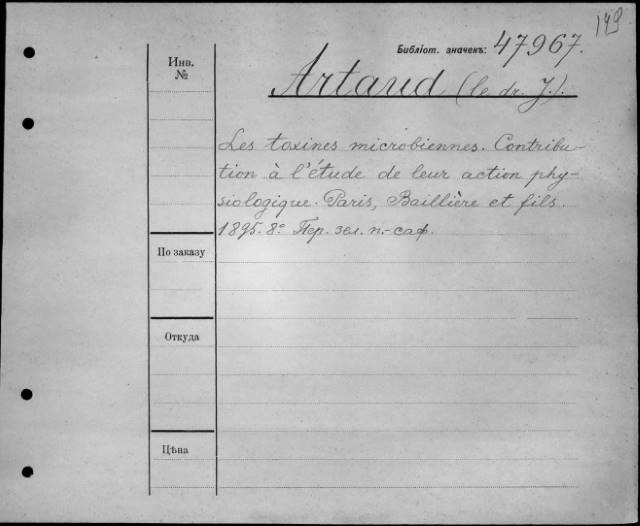 149
Библіот. значекъ: 47967.
Инв.
№
Artaud (le dr. J.).
Les toxines microbiennes. Contribu-
tion à l'étude de leur action phy-
siologique. Paris, Baillière et fils.
1895. 8º. Пер. зел. п.-саф.
По заказу
Откуда
Цѣна